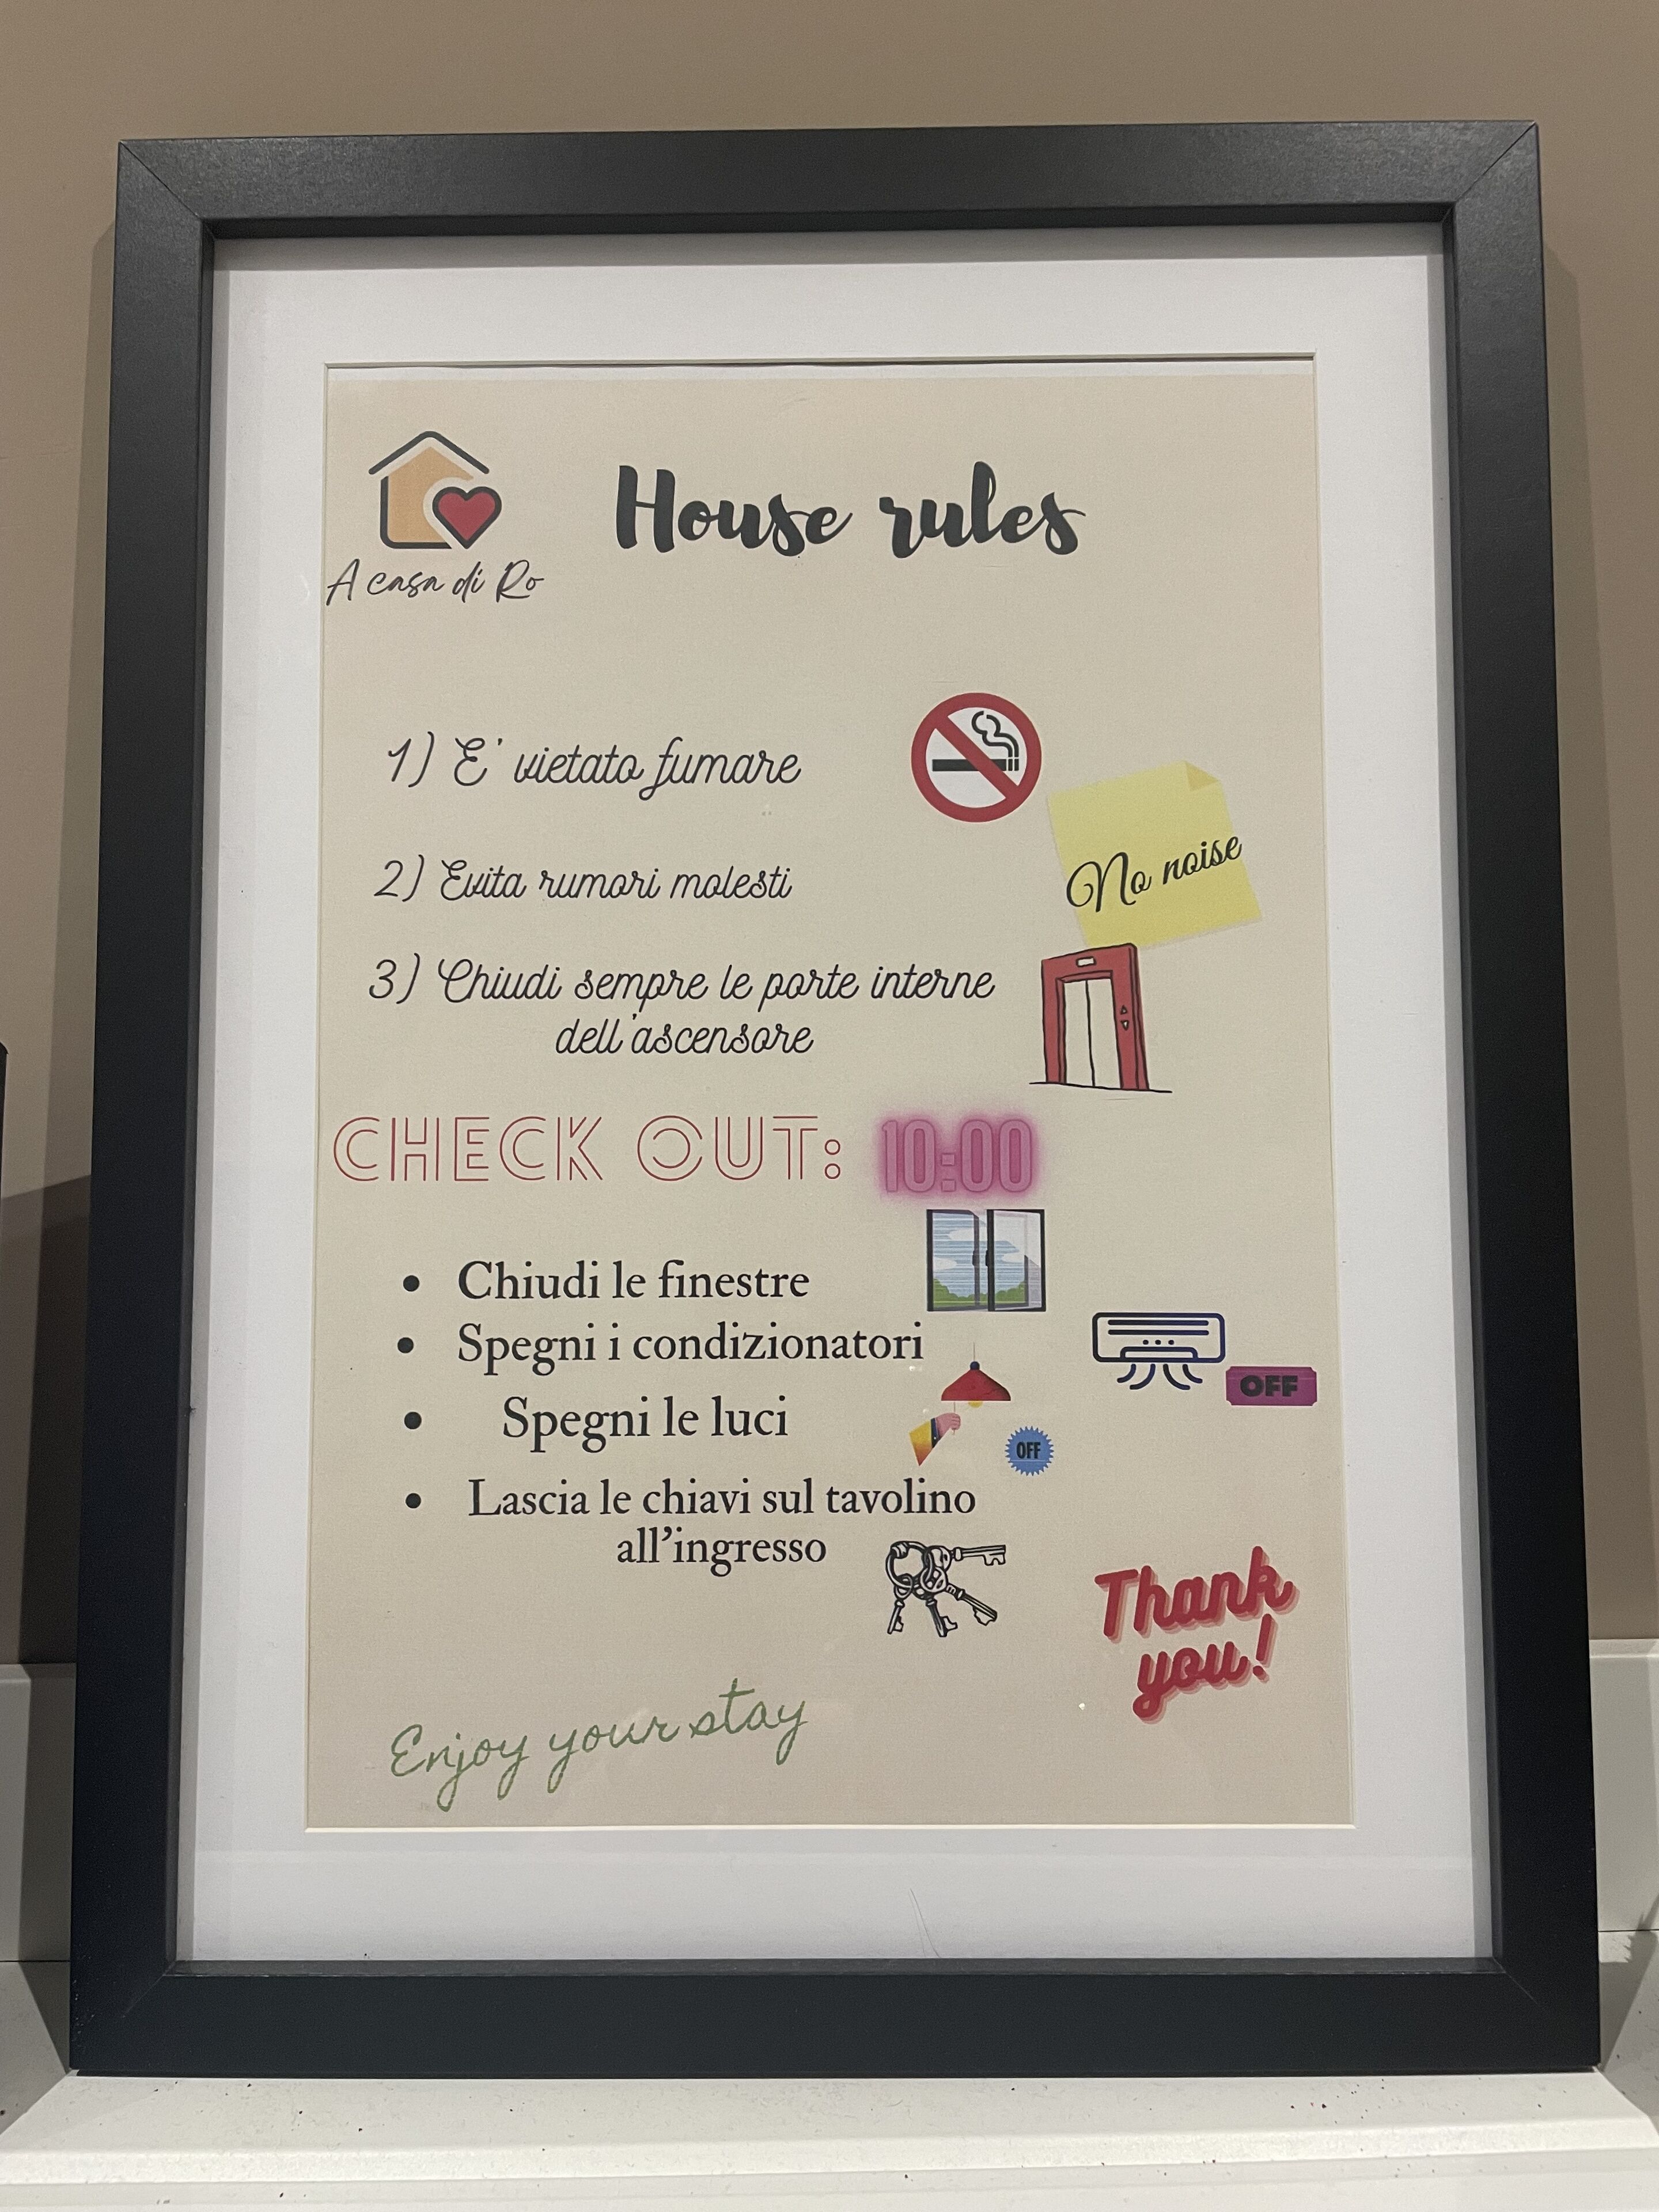 House rules
A casa di Ro
1) E' vietato fumare
2) Evita rumori molesti
No noise
3) Chiudi sempre le porte interne
dell'ascensore
CHECK OUT: 10:00
• Chiudi le finestre
• Spegni i condizionatori
OFF
• Spegni le luci
OFF
• Lascia le chiavi sul tavolino
all’ingresso
Thank
you!
Enjoy your stay